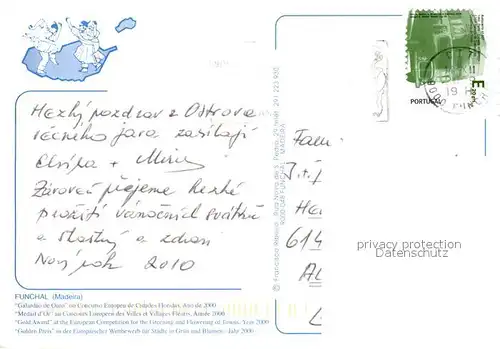 Hezký pozdrav z Ostrova
věčného jara zasílají
Zároveň přejeme hezké
prožití vánočních svátků
a šťastný a zdravý
Nový rok 2010
FUNCHAL (Madeira)
"Galardão de Ouro" no Concurso Europeu de Cidades Floridas, Ano de 2000
"Médail d'Or" au Concours Européen des Villes et Villages Fleuris, Année 2000
"Gold Award" at the European Competition for the Greening and Flowering of Towns, Year 2000
"Golden Preis" in der Europäischer Wettbewerb für Städte in Grün und Blumen, Jahr 2000
© Francisco Ribeiro
9000 FUNCHAL - MADEIRA
Fam.
J.+
HE
614
AL
privacy protection
Datenschutz
PORTUGAL
E
19